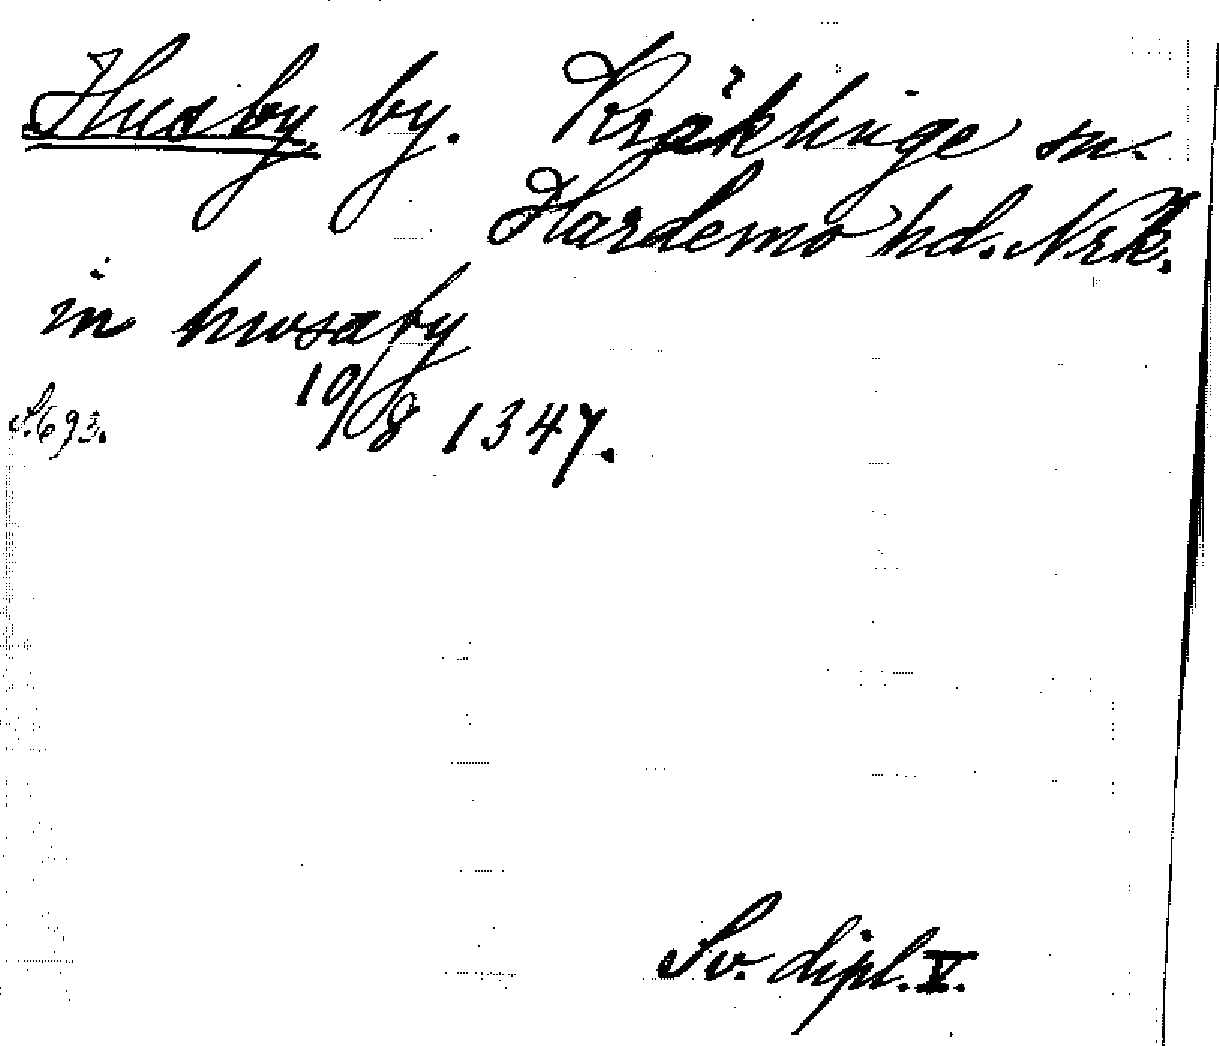 Husby by. Kräklinge sn.
Hardemo hd. Nrk.
in husaby
10/8 1347.
S. 693.
Sv. dipl. V.